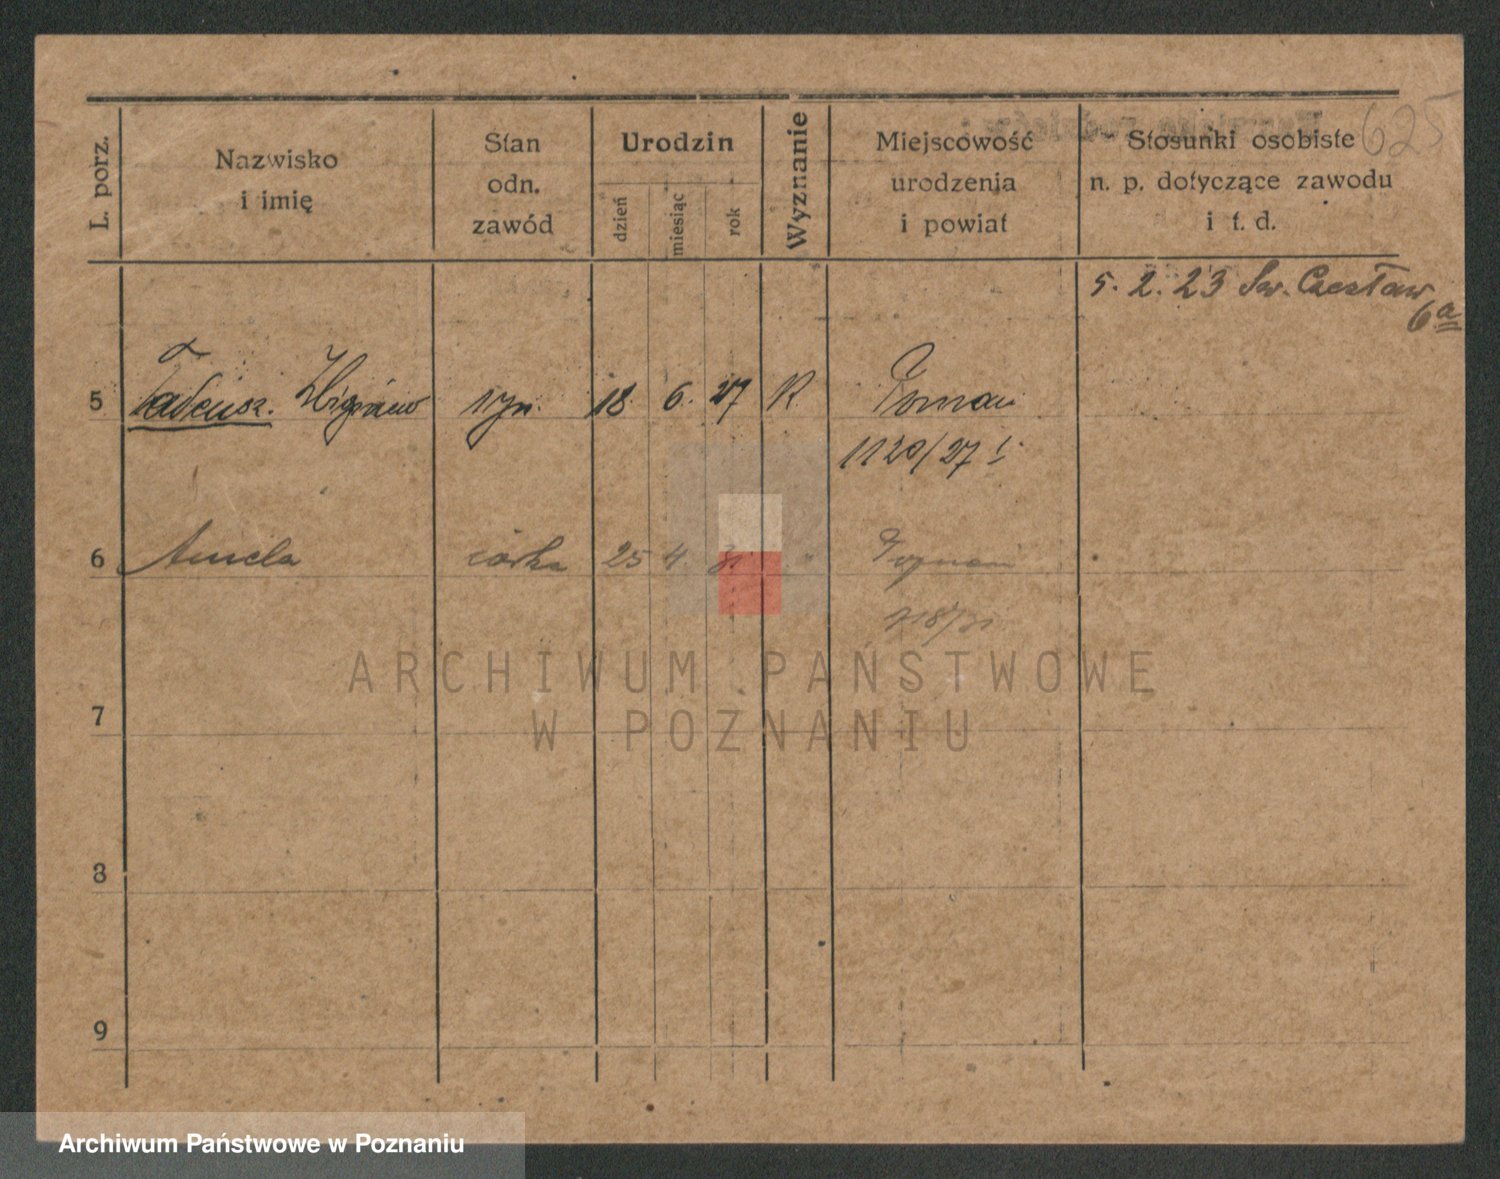 625
L. porz.
Nazwisko
i imię
Stan
odn.
zawód
Urodzin
dzień
miesiąc
rok
Wyznanie
Miejscowość
urodzenia
i powiat
Stosunki osobiste
n. p. dotyczące zawodu
i t. d.
5. 2. 23 Św. Czesław
6a
5 Tadeusz. Zbigniew syn. 18. 6. 27 R Poznań
1120/27 I
6 Aniela córka 25 4. 31 " Poznań
718/31
ARCHIWUM PAŃSTWOWE
W POZNANIU
7
8
9
Archiwum Państwowe w Poznaniu